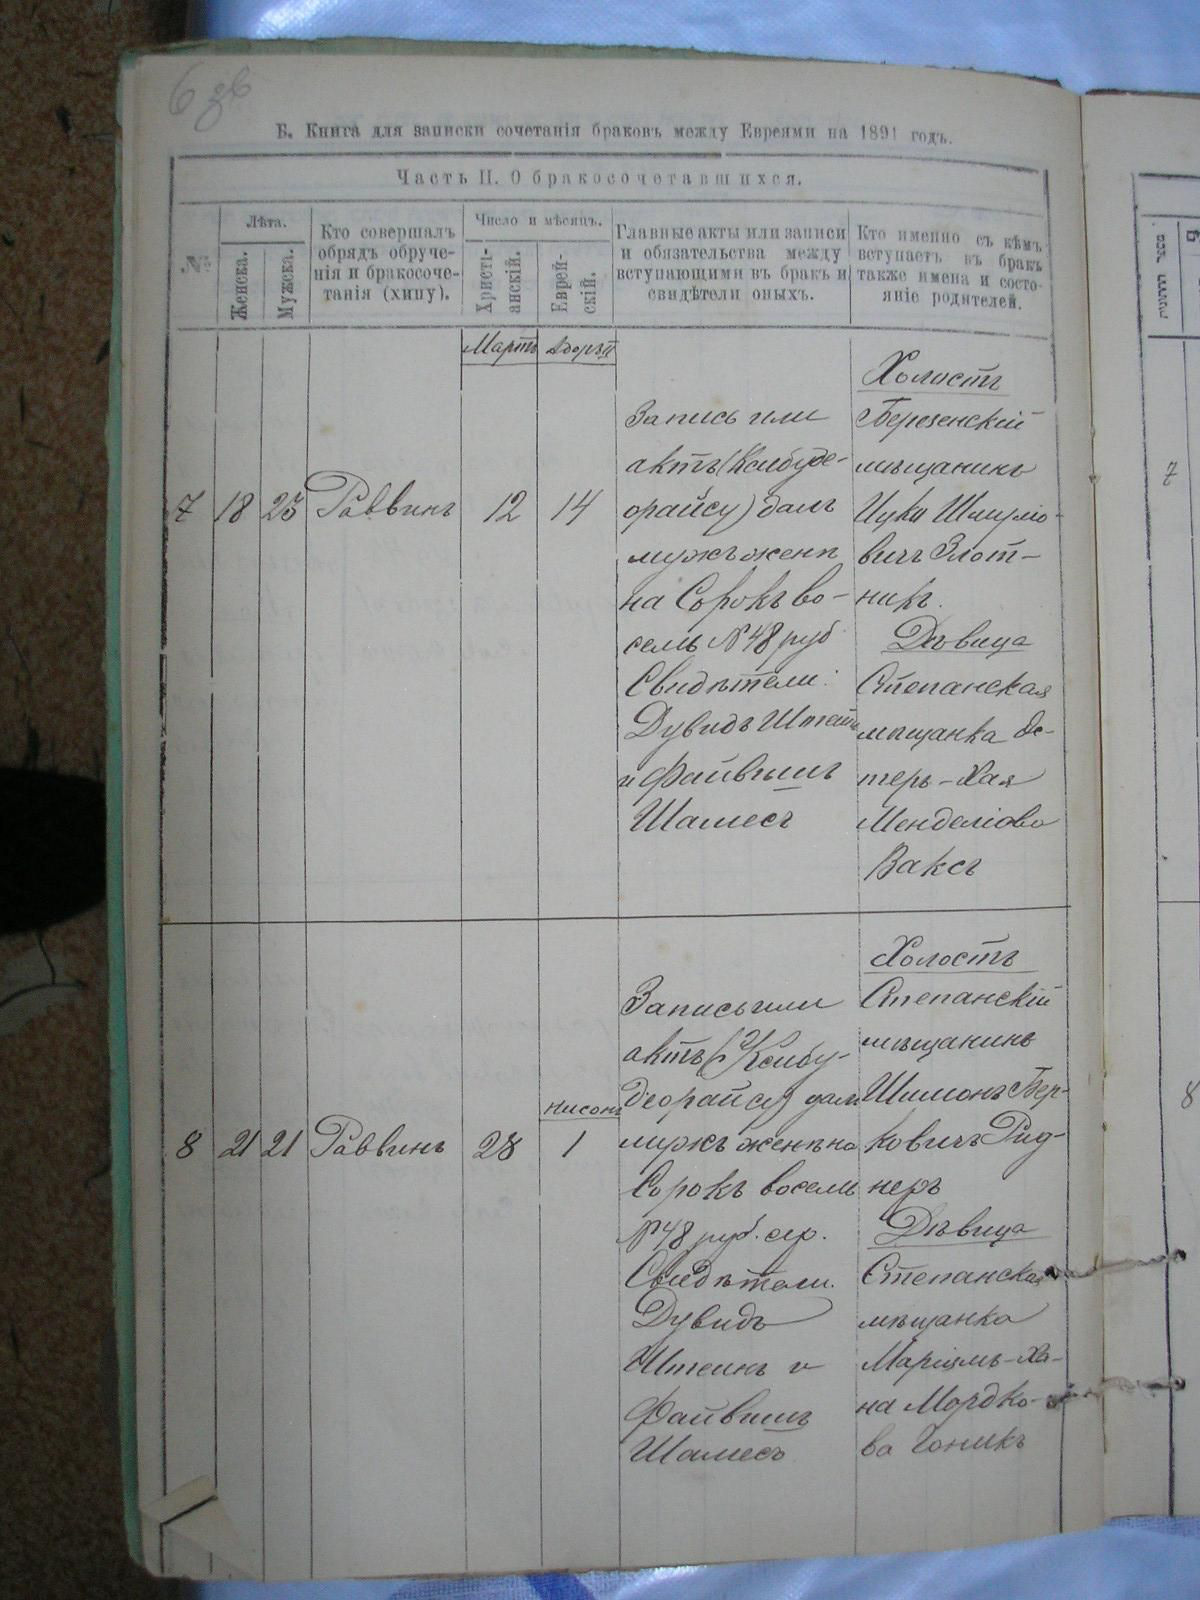 6 зв
Б. Книга для записки сочетанія браковъ между Евреями на 1891 годъ.
Часть II. О бракосочетавшихся.
№
Лѣта.
Женска.
Мужска.
Кто совершалъ
обрядъ обруче-
нія и бракосоче-
танія (хипу).
Число и мѣсяцъ.
Христі-
анскій.
Еврей-
скій.
Главные акты или записи
и обязательства между
вступающими въ бракъ и
свидѣтели оныхъ.
Кто именно съ кѣмъ
вступаетъ въ бракъ
также имена и состо-
яніе родителей.
Мартъ
Адоръ II
7
18
23
Раввинъ
12
14
Запись или
актъ (Ксибуде-
орайсу) далъ
мужъ женѣ
на Сорокъ во-
семь № 48 руб
Свидѣтели:
Дувидъ Штейнъ
и Файвишъ
Шамесъ
Холостъ
Березенскій
мѣщанинъ
Ицко Шмуліо-
вичъ Злот-
никъ.
Дѣвица
Степанская
мѣщанка Эс-
теръ-Хая
Менделіова
Ваксъ
8
21
21
Раввинъ
28
Нисонъ
1
Запись или
актъ (Ксибу-
деорайсу) далъ
мужъ женѣ на
Сорокъ восемь
№ 48 руб. сер.
Свидѣтели.
Дувидъ
Штеинъ и
Файвишъ
Шамесъ
Холостъ
Степанскій
мѣщанинъ
Шимонъ Бер-
ковичъ Рид-
неръ
Дѣвица
Степанская
мѣщанка
Маріямъ-Ха-
на Мордко-
ва Гоникъ
7
8